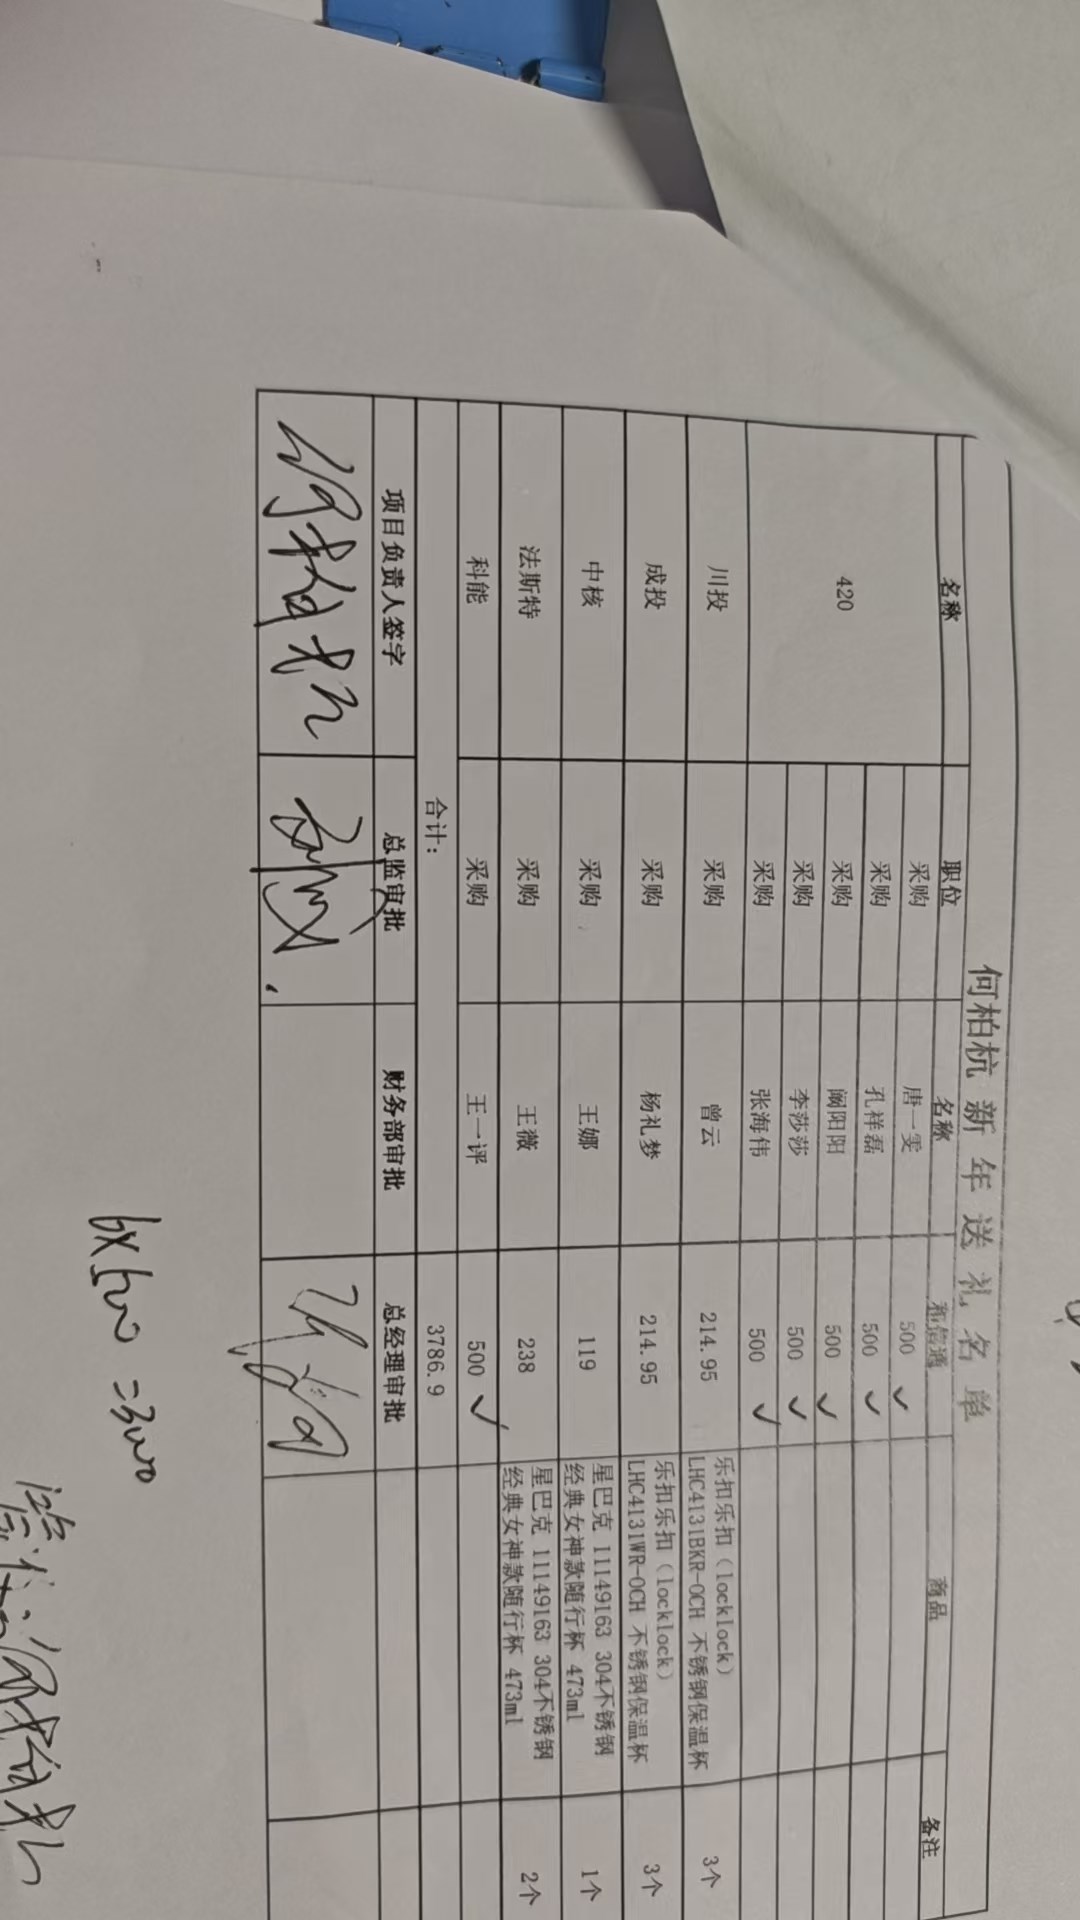 何柏杭 新 年 送 礼 名 单
名称 职位 名称 和信通 商品 备注
420 采购 唐一雯 500 ✓
采购 孔祥磊 500 ✓
采购 阚阳阳 500 ✓
采购 李莎莎 500 ✓
采购 张海伟 500 ✓
川投 采购 曾云 214.95 乐扣乐扣（locklock） LHC4131BKR-OCH 不锈钢保温杯 3个
成投 采购 杨礼梦 214.95 乐扣乐扣（locklock） LHC4131WR-OCH 不锈钢保温杯 3个
中核 采购 王娜 119 星巴克 11149163 304不锈钢 经典女神款随行杯 473ml 1个
法斯特 采购 王薇 238 星巴克 11149163 304不锈钢 经典女神款随行杯 473ml 2个
科能 采购 王一评 500 ✓
合计： 3786.9
项目负责人签字 总监审批 财务部审批 总经理审批
何柏杭
6×500=3000